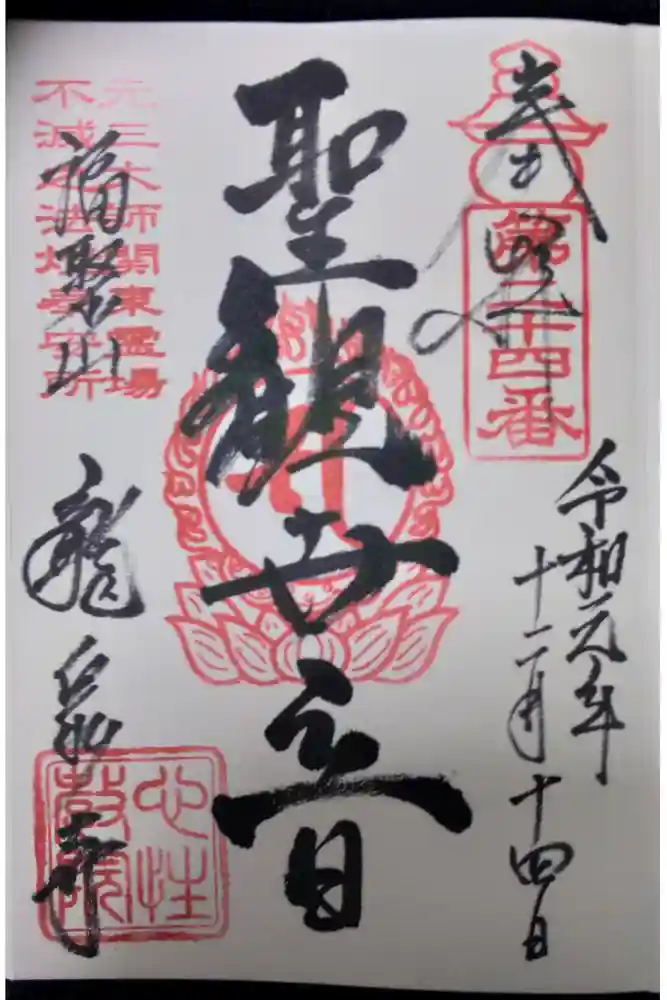 第二十四番
令和元年
十二月十四日
聖観世音
元三大師関東霊場
不滅之法灯奉安所
福聚山
龍泉寺